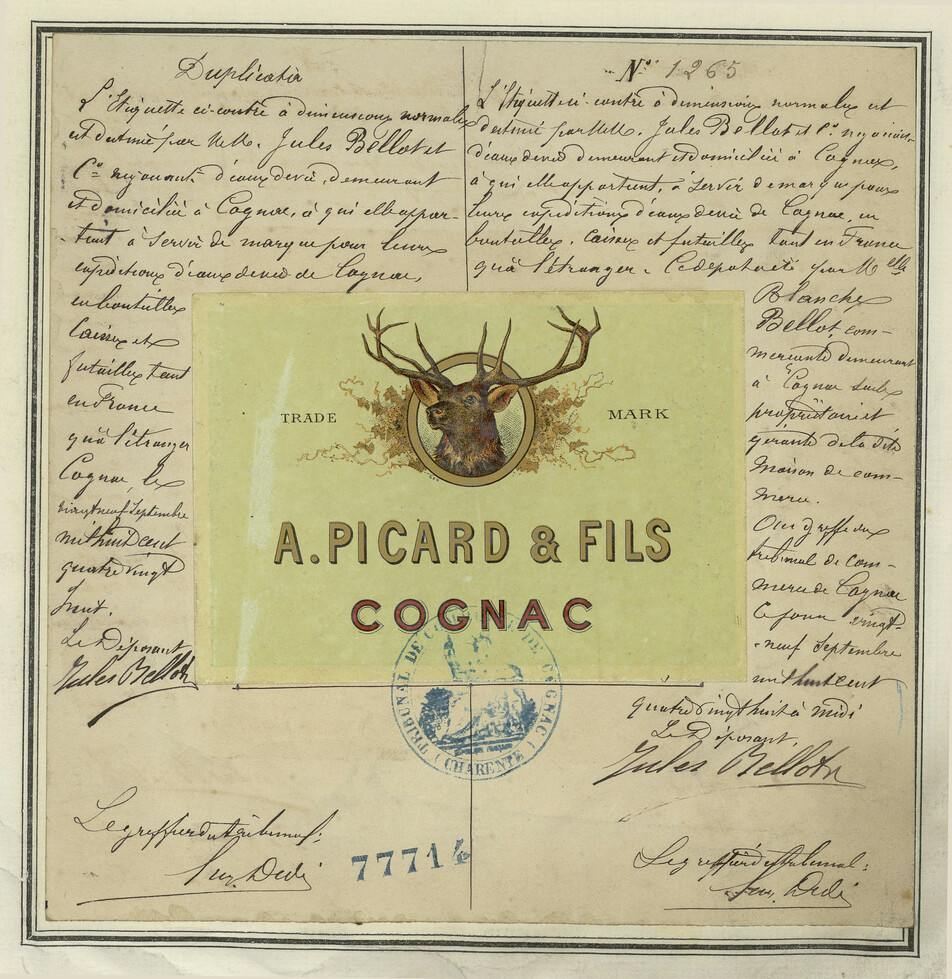 Duplicata
L'Étiquette ci-contre à dimensions normales
est destiné par MM. Jules Bellot et
Cº négociants d'eaux de vie, demeurant
et domicilié à Cognac, à qui elle appar-
-tient à servir de marque pour leurs
expéditions d'eaux de vie de Cognac,
en bouteilles
Caisses et
futailles tant
en France
qu'à l'étranger
Cognac, le
vingt neuf Septembre
mil huit cent
quatre vingt
huit.
Le Déposant
Jules Bellot
Le greffier du tribunal:
Nº 1265
L'Étiquette ci-contre à dimensions normales est
destiné par MM. Jules Bellot et Cº négociants
d'eaux de vie demeurant et domicilié à Cognac,
à qui elle appartient, à servir de marque pour
leurs expéditions d'eaux de vie de Cognac, en
bouteilles, Caisses et futailles tant en France
qu'à l'étranger. Ce dépôt a été par Melle
Blanche
Bellot, com-
merçante demeurant
à Cognac seule
propriétaire et
gérante de la dite
Maison de com-
merce.
Au greffe du
tribunal de com-
merce de Cognac
Ce jour vingt-
-neuf Septembre
mil huit cent
quatre vingt huit à midi
Le Déposant,
Jules Bellot
Le greffier du tribunal:
TRADE MARK
A. PICARD & FILS
COGNAC
TRIBUNAL DE COMMERCE DE COGNAC
(CHARENTE)
77714